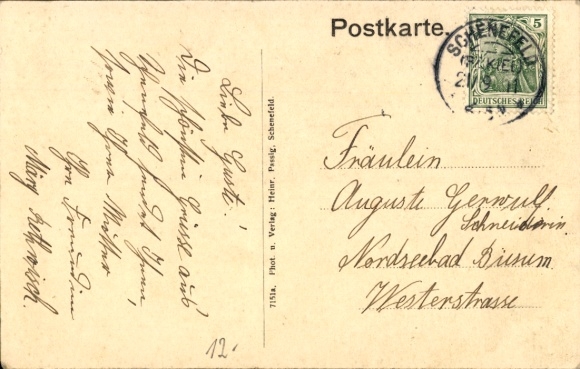 Postkarte.
5
DEUTSCHES REICH
SCHENEFELD
(BZ. KIEL)
Liebe Guste!
Die schönsten Grüsse aus
Schenefeld sendet Ihnen,
sowie Ihrer Mutter
Ihre Freundin
Marg Rethwisch.
7151a. Phot. u. Verlag: Heinr. Passig, Schenefeld.
Fräulein
Auguste Gerwulf
Schneiderin
Nordseebad Büsum
Westerstrasse
12.